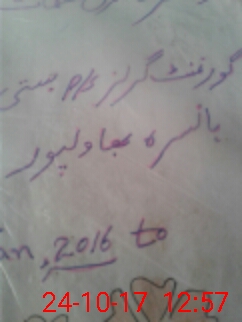 گورنمنٹ گرلز p/s جستی
بانسرہ بہاولپور
in, 2016 to
24-10-17 12:57